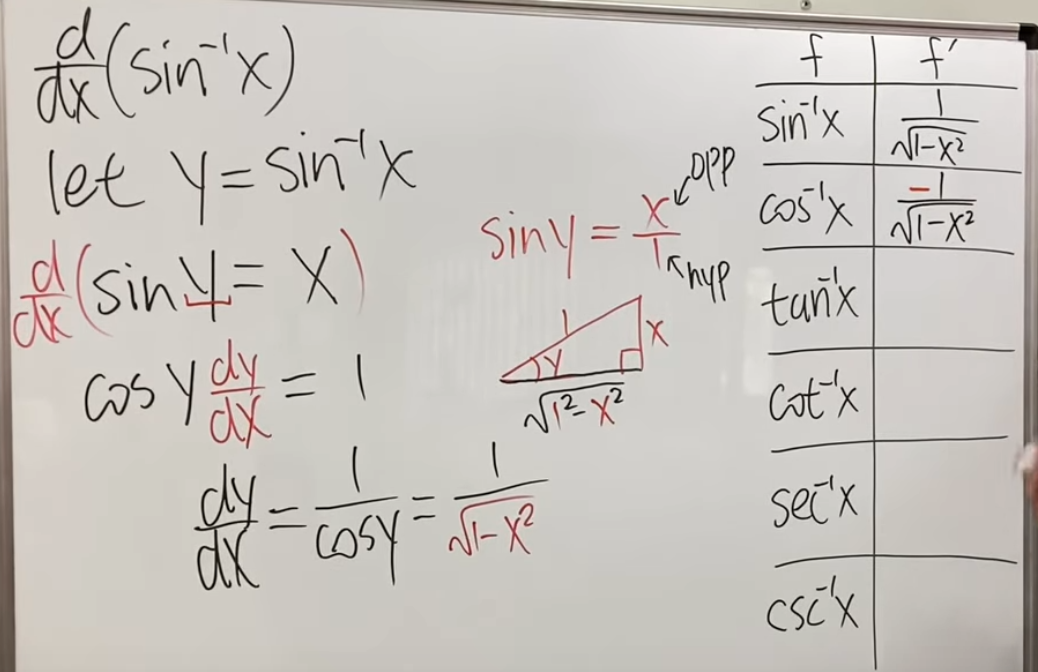 d/dx (sin⁻¹x)
let y = sin⁻¹x
d/dx (sin y = x)
cos y dy/dx = 1
dy/dx = 1/cos y = 1/√(1-x²)
sin y = x/1
opp
hyp
1
y
x
√(1²-x²)
f | f'
sin⁻¹x | 1/√(1-x²)
cos⁻¹x | -1/√(1-x²)
tan⁻¹x
cot⁻¹x
sec⁻¹x
csc⁻¹x